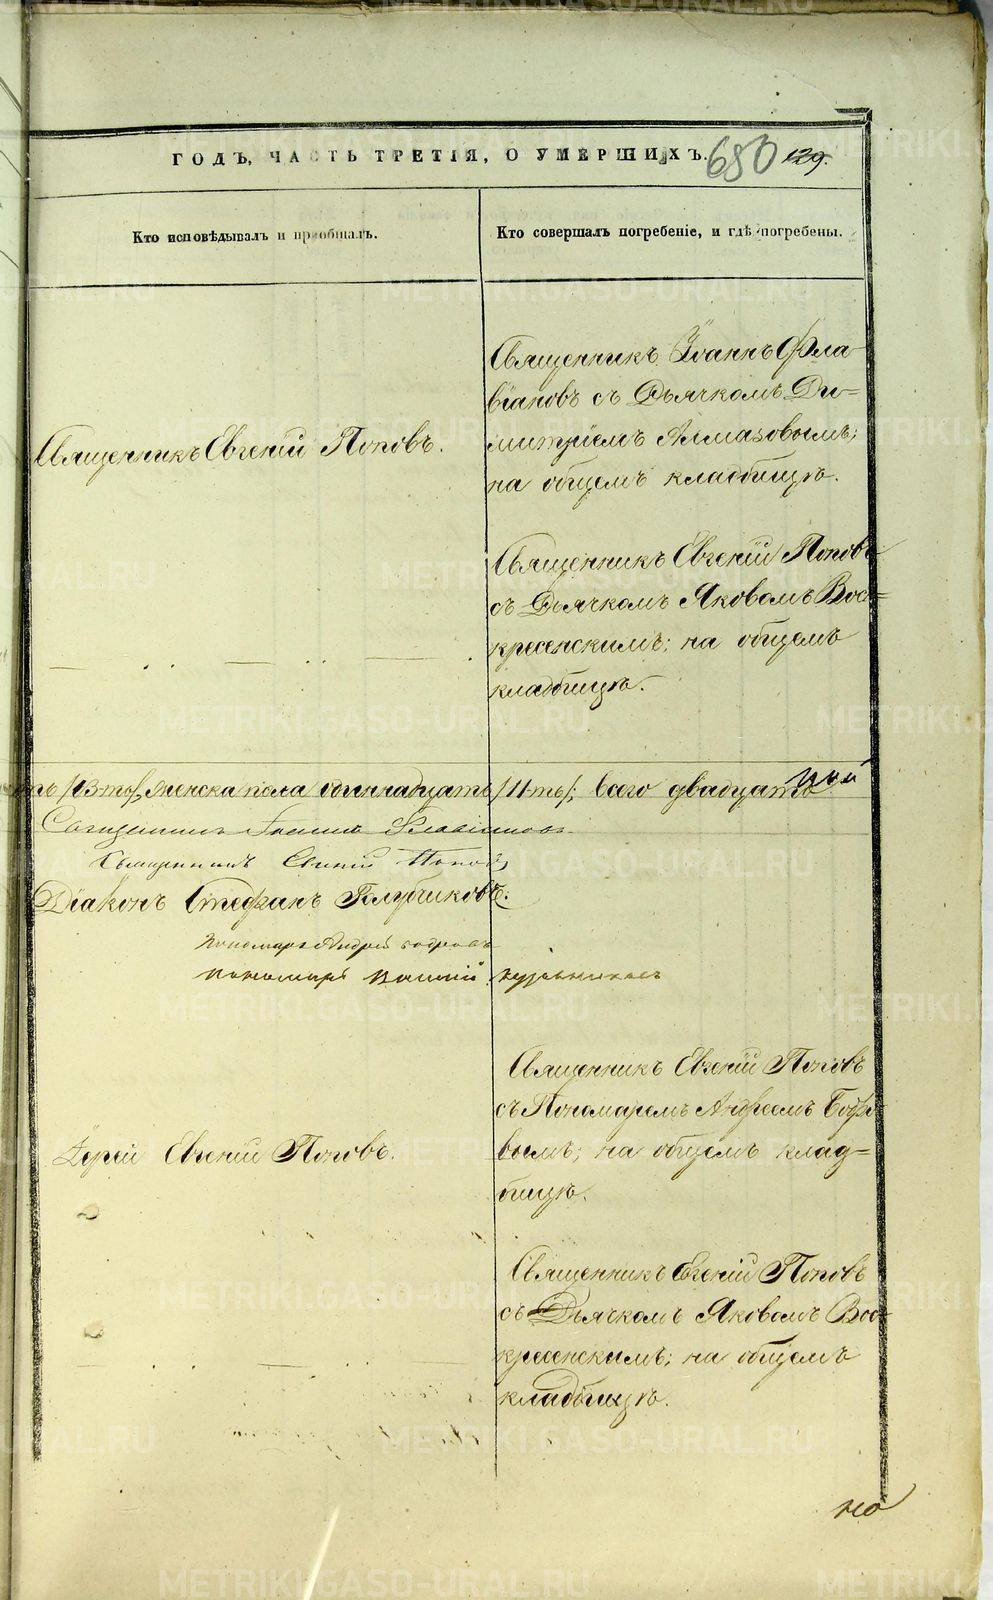 ГОДЪ, ЧАСТЬ ТРЕТІЯ, О УМЕРШИХЪ. 680 129.
Кто исповѣдывалъ и пріобщалъ.
Кто совершалъ погребеніе, и гдѣ погребены.
Священникъ Евгеній Поповъ.
Священникъ Іоаннъ Фла-
віановъ съ Дьячкомъ Ди-
митріемъ Алмазовымъ;
на общемъ кладбищѣ.
Священникъ Евгеній Поповъ
съ Дьячкомъ Яковомъ Вос-
кресенскимъ; на общемъ
кладбищѣ.
ть /13-ть/, женска пола одиннадцать /11-ть/; всего двадцать
Священникъ Іоаннъ Флавіановъ
Священникъ Евгеній Поповъ
Діаконъ Стефанъ Голубчиковъ.
Пономарь Андрей
пономарь
Іерей Евгеній Поповъ.
Священникъ Евгеній Поповъ
съ Пономаремъ Андреемъ
вымъ; на общемъ клад-
бищѣ.
Священникъ Евгеній Поповъ
съ Дьячкомъ Яковомъ Вос-
кресенскимъ; на общемъ
кладбищѣ.
но
METRIKI.GASO-URAL.RU